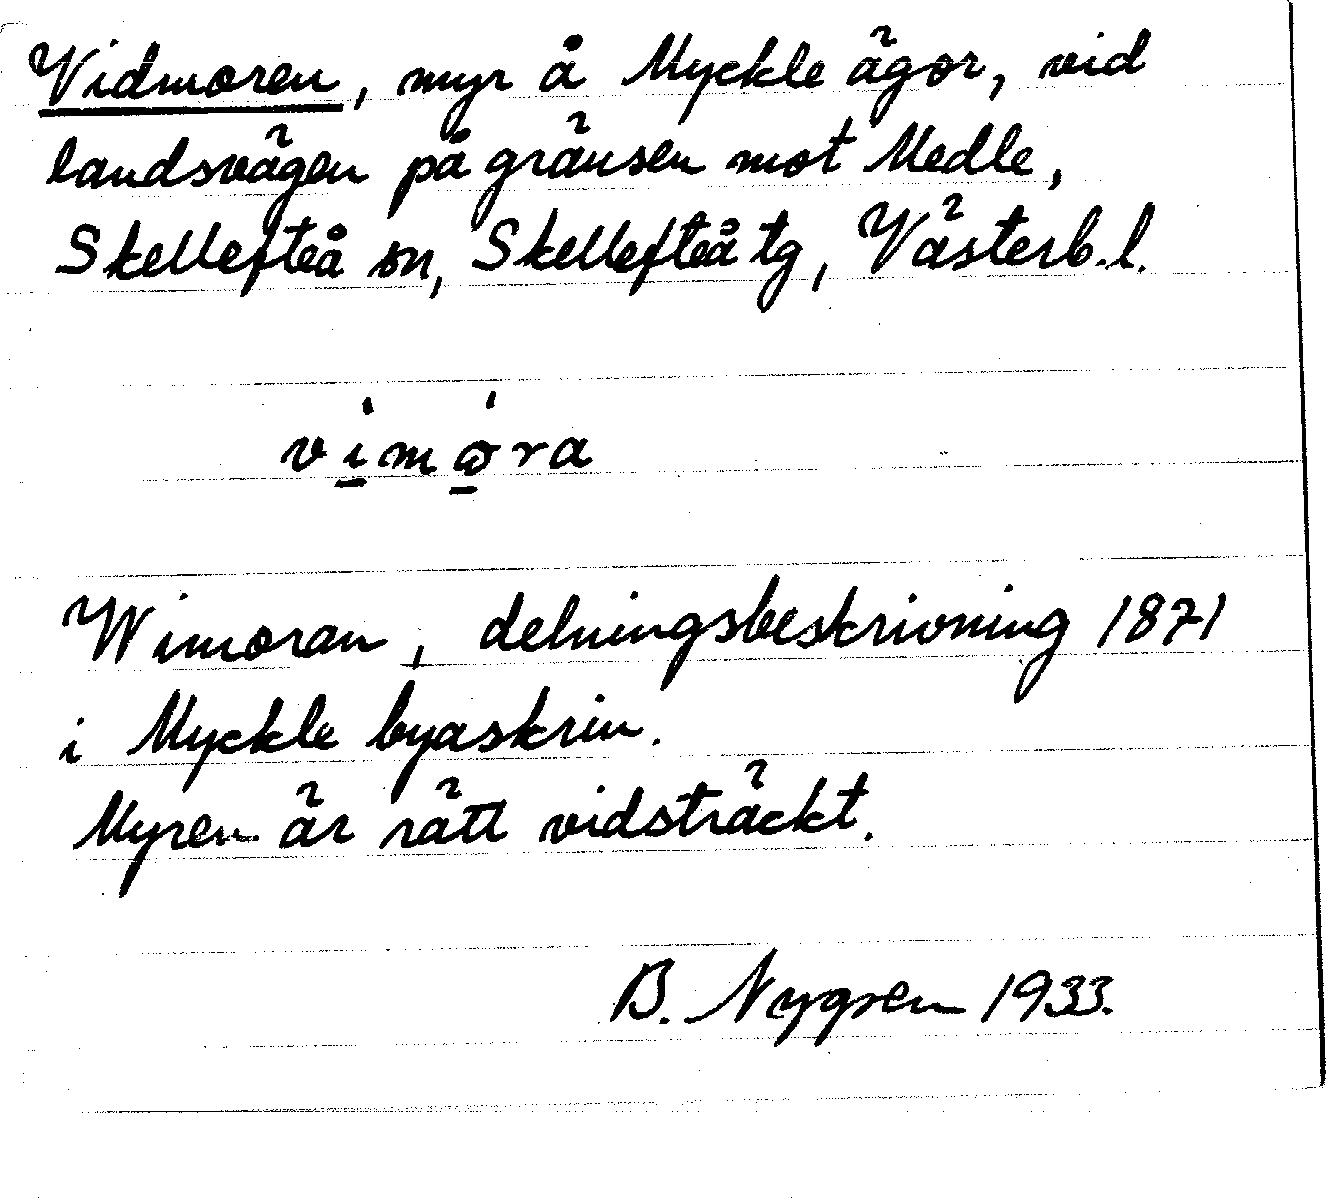 Vidmoren, myr å Myckle ägor, vid
landsvägen på gränsen mot Medle,
Skellefteå sn, Skellefteå tg, Västerb.l.
ví̱mò̱ra
Wimoran, delningsbeskrivning 1871
i Myckle byaskrin.
Myren är rätt vidsträckt.
B. Nygren 1933.